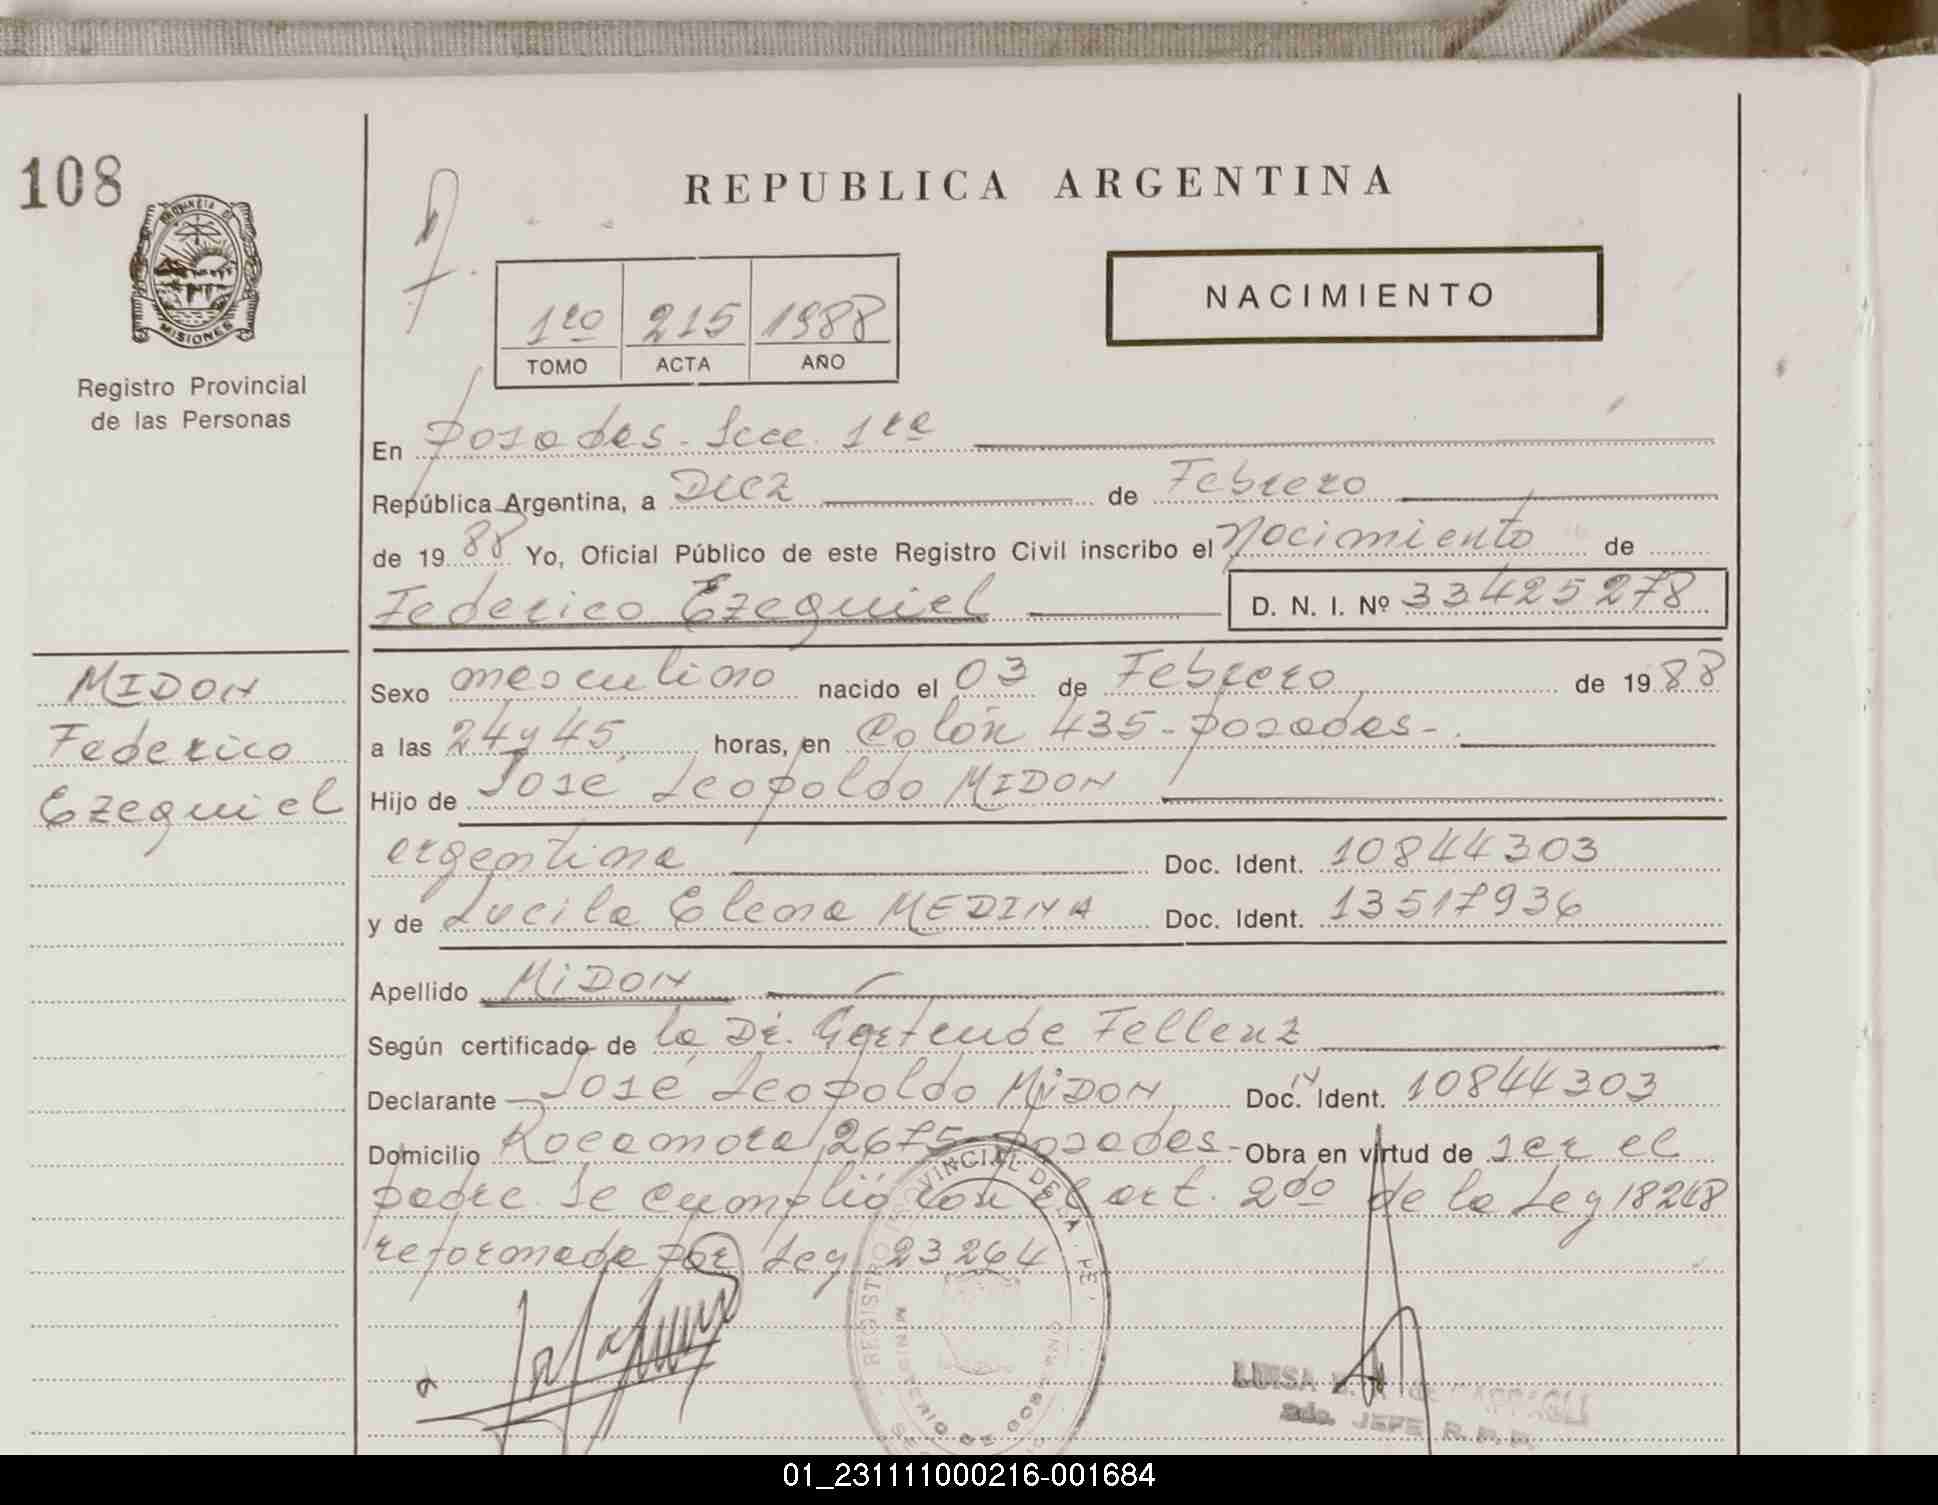 108
PROVINCIA DE
MISIONES
Registro Provincial
de las Personas
MIDON
Federico
Ezequiel
REPUBLICA ARGENTINA
1ro 215 1988
TOMO ACTA AÑO
NACIMIENTO
En Posadas - Secc. 1ra
República Argentina, a Diez de Febrero
de 1988 Yo, Oficial Público de este Registro Civil inscribo el Nacimiento de
Federico Ezequiel D. N. I. Nº 33425278
Sexo masculino nacido el 03 de Febrero de 1988
a las 24 y 45 horas, en Colón 435 - Posadas -
Hijo de José Leopoldo MIDON
argentina Doc. Ident. 10844303
y de Lucila Elena MEDINA Doc. Ident. 13517936
Apellido MIDON
Según certificado de la Dr. Gertrude Fellenz
Declarante José Leopoldo MIDON Doc. Ident. 10844303
Domicilio Rocamora 2675 - Posadas - Obra en virtud de ser el
padre. Se cumplió con el art. 2do de la Ley 18248
reformada por Ley 23264
REGISTRO PROVINCIAL DE LA PE
MINISTERIO DE GOBIERNO
LUISA
2do. JEFE R. P. P.
01_231111000216-001684